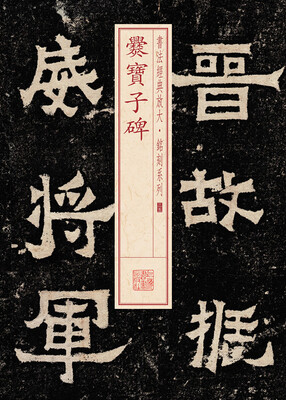 晉故振
威將軍
書法經典放大·銘刻系列
爨寶子碑